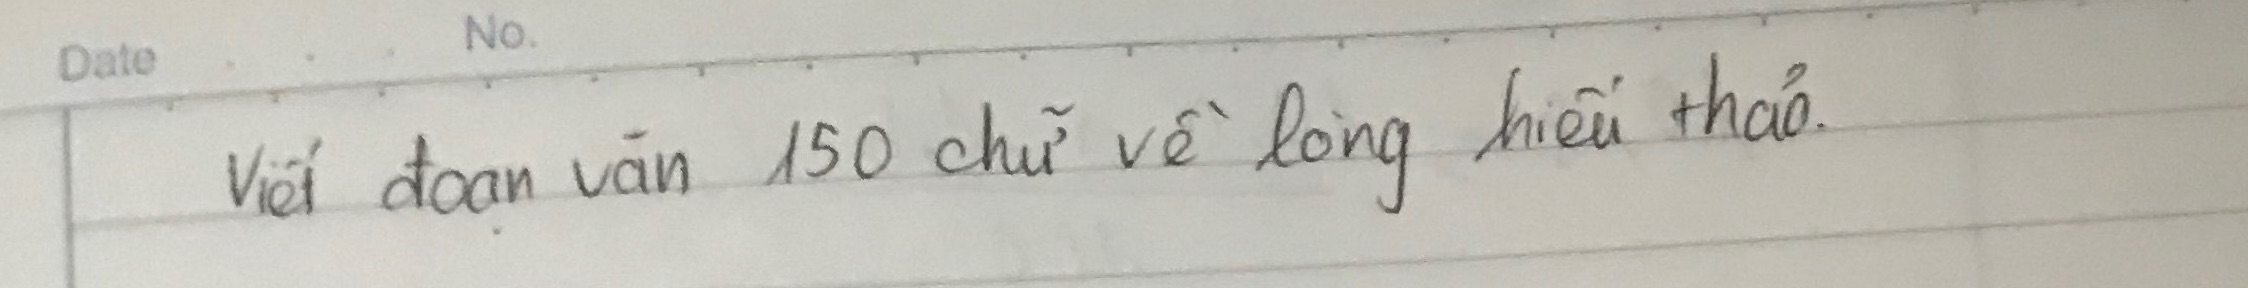 Date No.
Viết đoạn văn 150 chữ về lòng hiếu thảo.